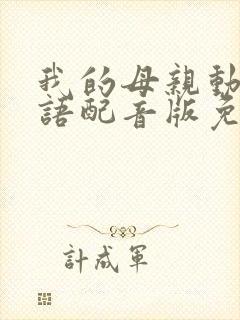 我的母親動
語配音版免
計成軍